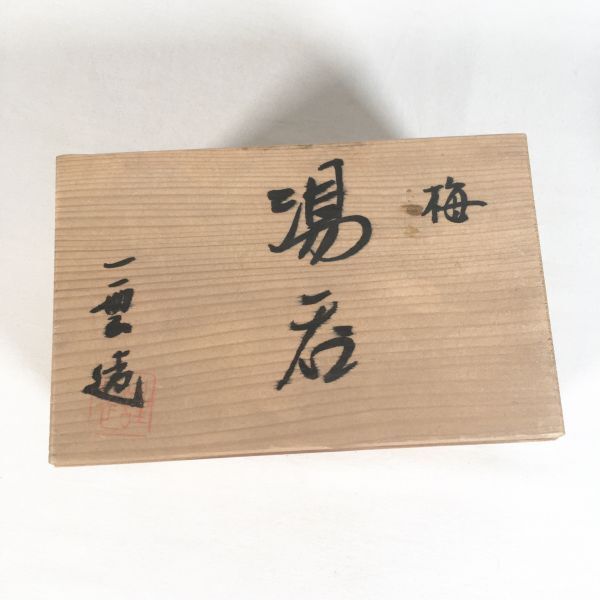 梅
湯呑
一雲造